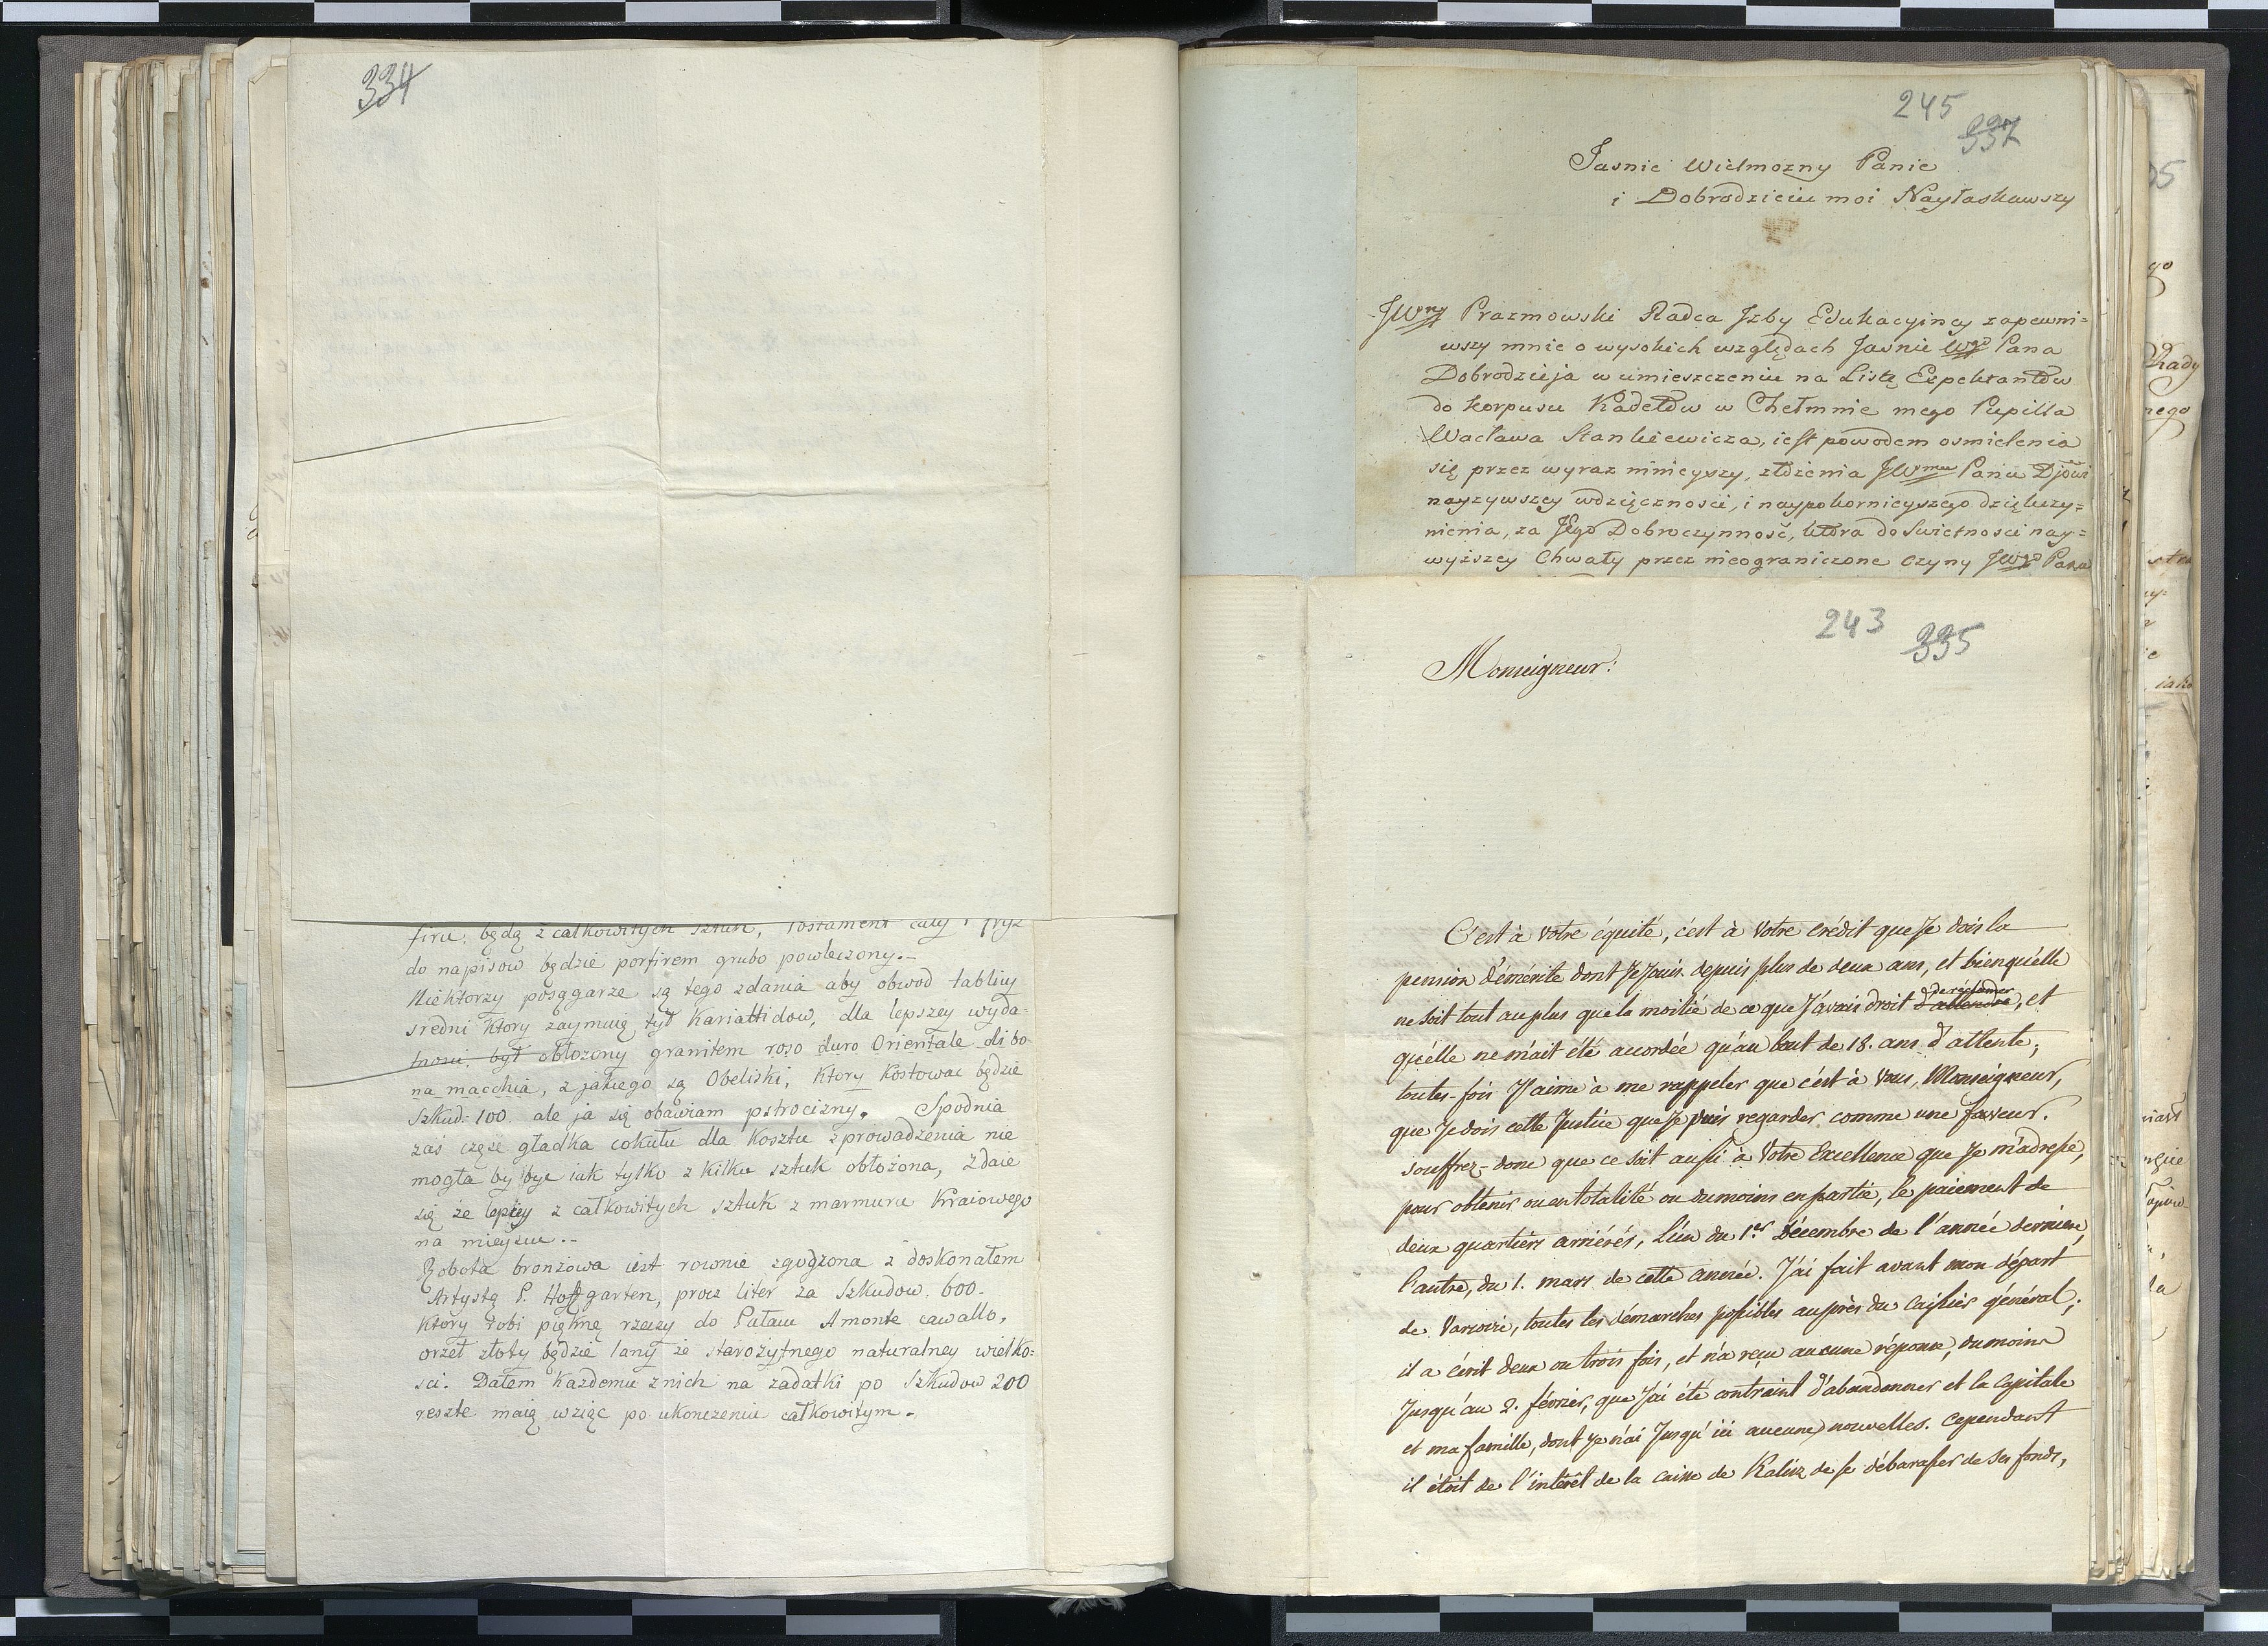 334
firu, będą z całkowitych sztuk, Postament cały i fryz
do napisow będzie porfirem grubo powleczony.-
Niektorzy posągarze są tego zdania aby obwod tablicy
sredni ktory zaymuią tył Kariattidow, dla lepszey wyda-
tnosci, był obłozony granitem roso duro Orientale di bo-
na macchia, z jakiego są Obeliski, ktory kostowac będzie
Szkud: 100. ale ja się obawiam pstrocizny. Spodnia
zaś częśc gładka cokułu dla kosztu zprowadzenia nie
mogła by byc iak tylko z kilku sztuk obłożona, Zdaie
się że lepiey z całkowitych sztuk z marmuru Kraiowego
na mieyscu.-
Robota bronzowa iest rownie zgodzona z doskonałem
Artystą P. Hofgarten, procz liter za Szkudow. 600.
ktory robi piękne rzeczy do Pałacu A monte cawallo,
orzeł złoty będzie lany ze starożytnego naturalney wielko=
sci. Dałem kazdemu znich na zadatki po Szkudow 200
reszte maią wziąc po ukonczeniu całkowitym.
245
337
Jasnie Wielmozny Panie
i Dobrodzieiu moi Nayłaskawszy
JWny Prazmowski Radca Jzby Edukacyiney zapewni=
wszy mnie o wysokich względach Jasnie Wgo Pana
Dobrodzieja w umieszczeniu na Listę Expektantów
do korpusu Kadetów w Chełmnie mego Pupilla
Wacława Stankiewicza, iest powodem osmielenia
się przez wyraz ninieyszy, złożenia JWmu Panu Djowi
nayzywszey wdzięcznosci, i naypokornieyszego dziękczy=
nienia, za Jego Dobroczynność, która do Swietnosci nay=
wyższey Chwały przez nieograniczone czyny JWgo Pana
243
335
Monseigneur:
C'est à votre équité, c'est à votre crédit que Je dois la
pension d'émérite dont Je Jouis depuis plus de deux ans, et bienqu'elle
ne soit tout au plus que la moitié de ce que J'avais droit d'attendre de réclamer, et
qu'elle ne m'ait été accordée qu'au bout de 18. ans d'attente;
toutes-fois J'aime à me rappeler que c'est à Vous, Monseigneur,
que Je dois cette Justice que Je puis regarder comme une faveur.
souffrez-donc que ce soit aussi à Votre Excellence que Je m'adresse,
pour obtenir ou en totalité ou dumoins en partie, le paiement de
deux quartiers arriérés, l'un du 1.er Décembre de l'année dernière,
l'autre, du 1. mars de cette année. J'ai fait avant mon départ
de Varsovie, toutes les démarches possibles auprès du Caissier général;
il a écrit deux ou trois fois, et n'a reçu aucune réponse, dumoins
Jusqu'au 2. février, que J'ai été contraint d'abandonner et la Capitale
et ma famille, dont Je n'ai Jusqu'ici aucunes nouvelles. Cependant
il étoit de l'intérêt de la caisse de Kalisz de se débarasser de ses fonds,